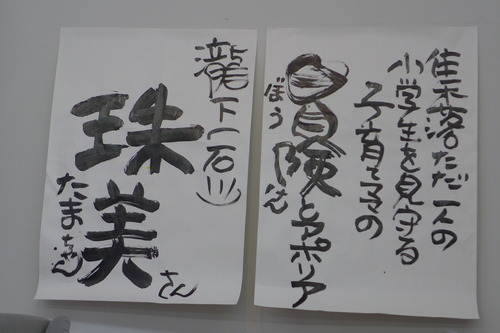 集落ただ一人の
小学生を見守る
子育てママの
冒険とアポリア
ぼうけん
瀧下一石♨
珠美さん
たまちゃん